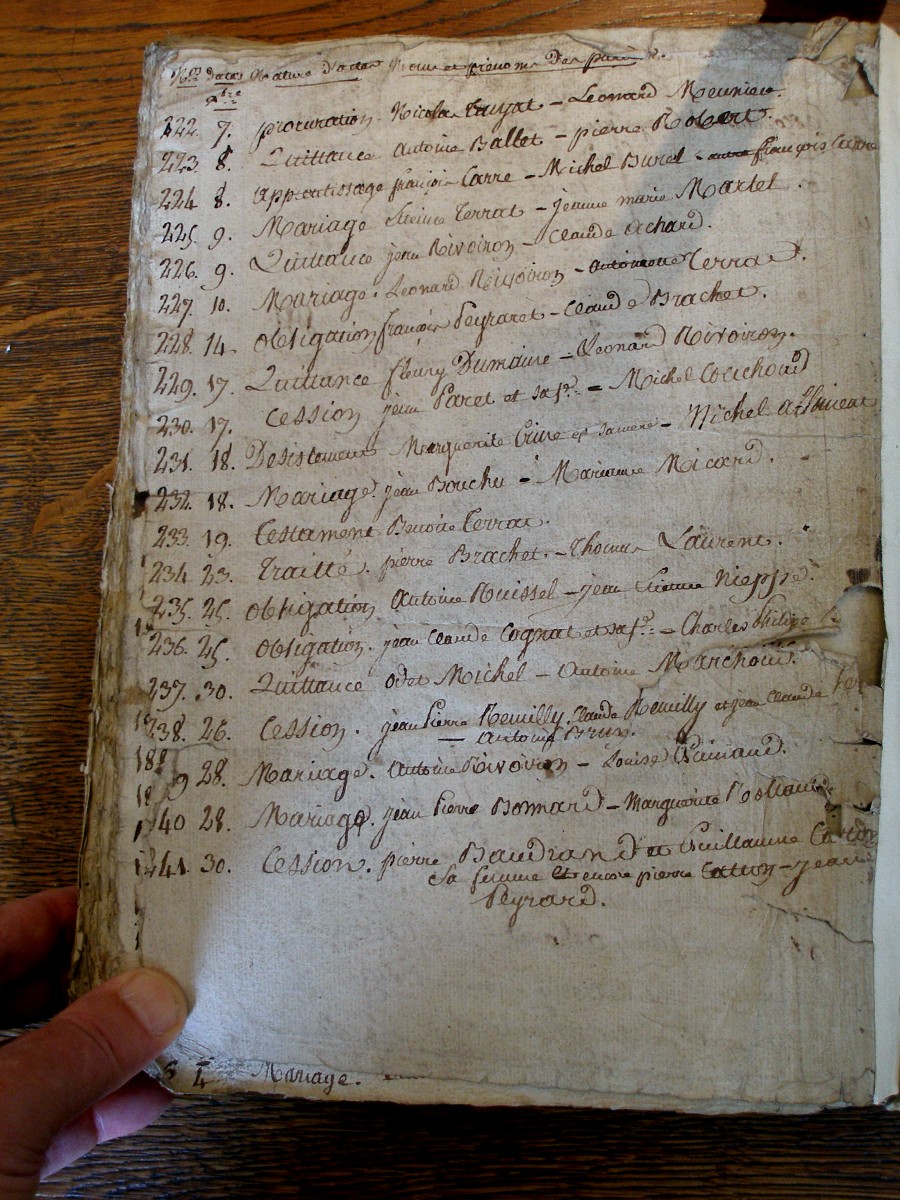 Nos. Dates Nature D'actes Noms et prénoms Des parties.
9bre
222. 7. procuration. Nicolas Guyat - Leonard Meunier.
223. 8. Quittance Antoine Ballet - pierre Robert.
224 8. Apprentissage françois Carre - Michel Burel françois Carre
225. 9. Mariage Etienne Terrat - jeanne marie Martel.
226. 9. Quittance jean Rivoiron - Claude Achard.
227. 10. Mariage. Leonard Rivoiron - Antoinette Terrad.
228. 14. obligation françois Peyraret - Claude Brachet.
229. 17. Quittance fleury Dumaine - Leonard Rivoiron.
230. 17. Cession jean Paret et sa fe. - Michel Couchoud
231. 18. Desistement Marguerite et sa mere - Michel
232. 18. Mariage. jean Bouchu - Marianne Micard.
233. 19. Testament Benoite Terrat.
234 23. Traitté. pierre Brachet. - Thomas Laurent.
235. 25. obligation Antoine Ruissel - jean Etienne Niepse.
236. 25. obligation. jean Claude Cognat et sa fe. - Charles Philipe
237. 30. Quittance odet Michel - Antoine Marchoud.
238. 26. Cession. jean Pierre Remilly, Claude Remilly et jean Claude
- Antoine Brun.
9 28. Mariage. Antoine Rivoiron - Louise Guinaud.
40 28. Mariage. jean Pierre Bomard - Marguerite
241. 30. Cession. pierre Baudrand et Guillaume
Sa femme et encore pierre Catton - jean
Peyrard.
4 Mariage.